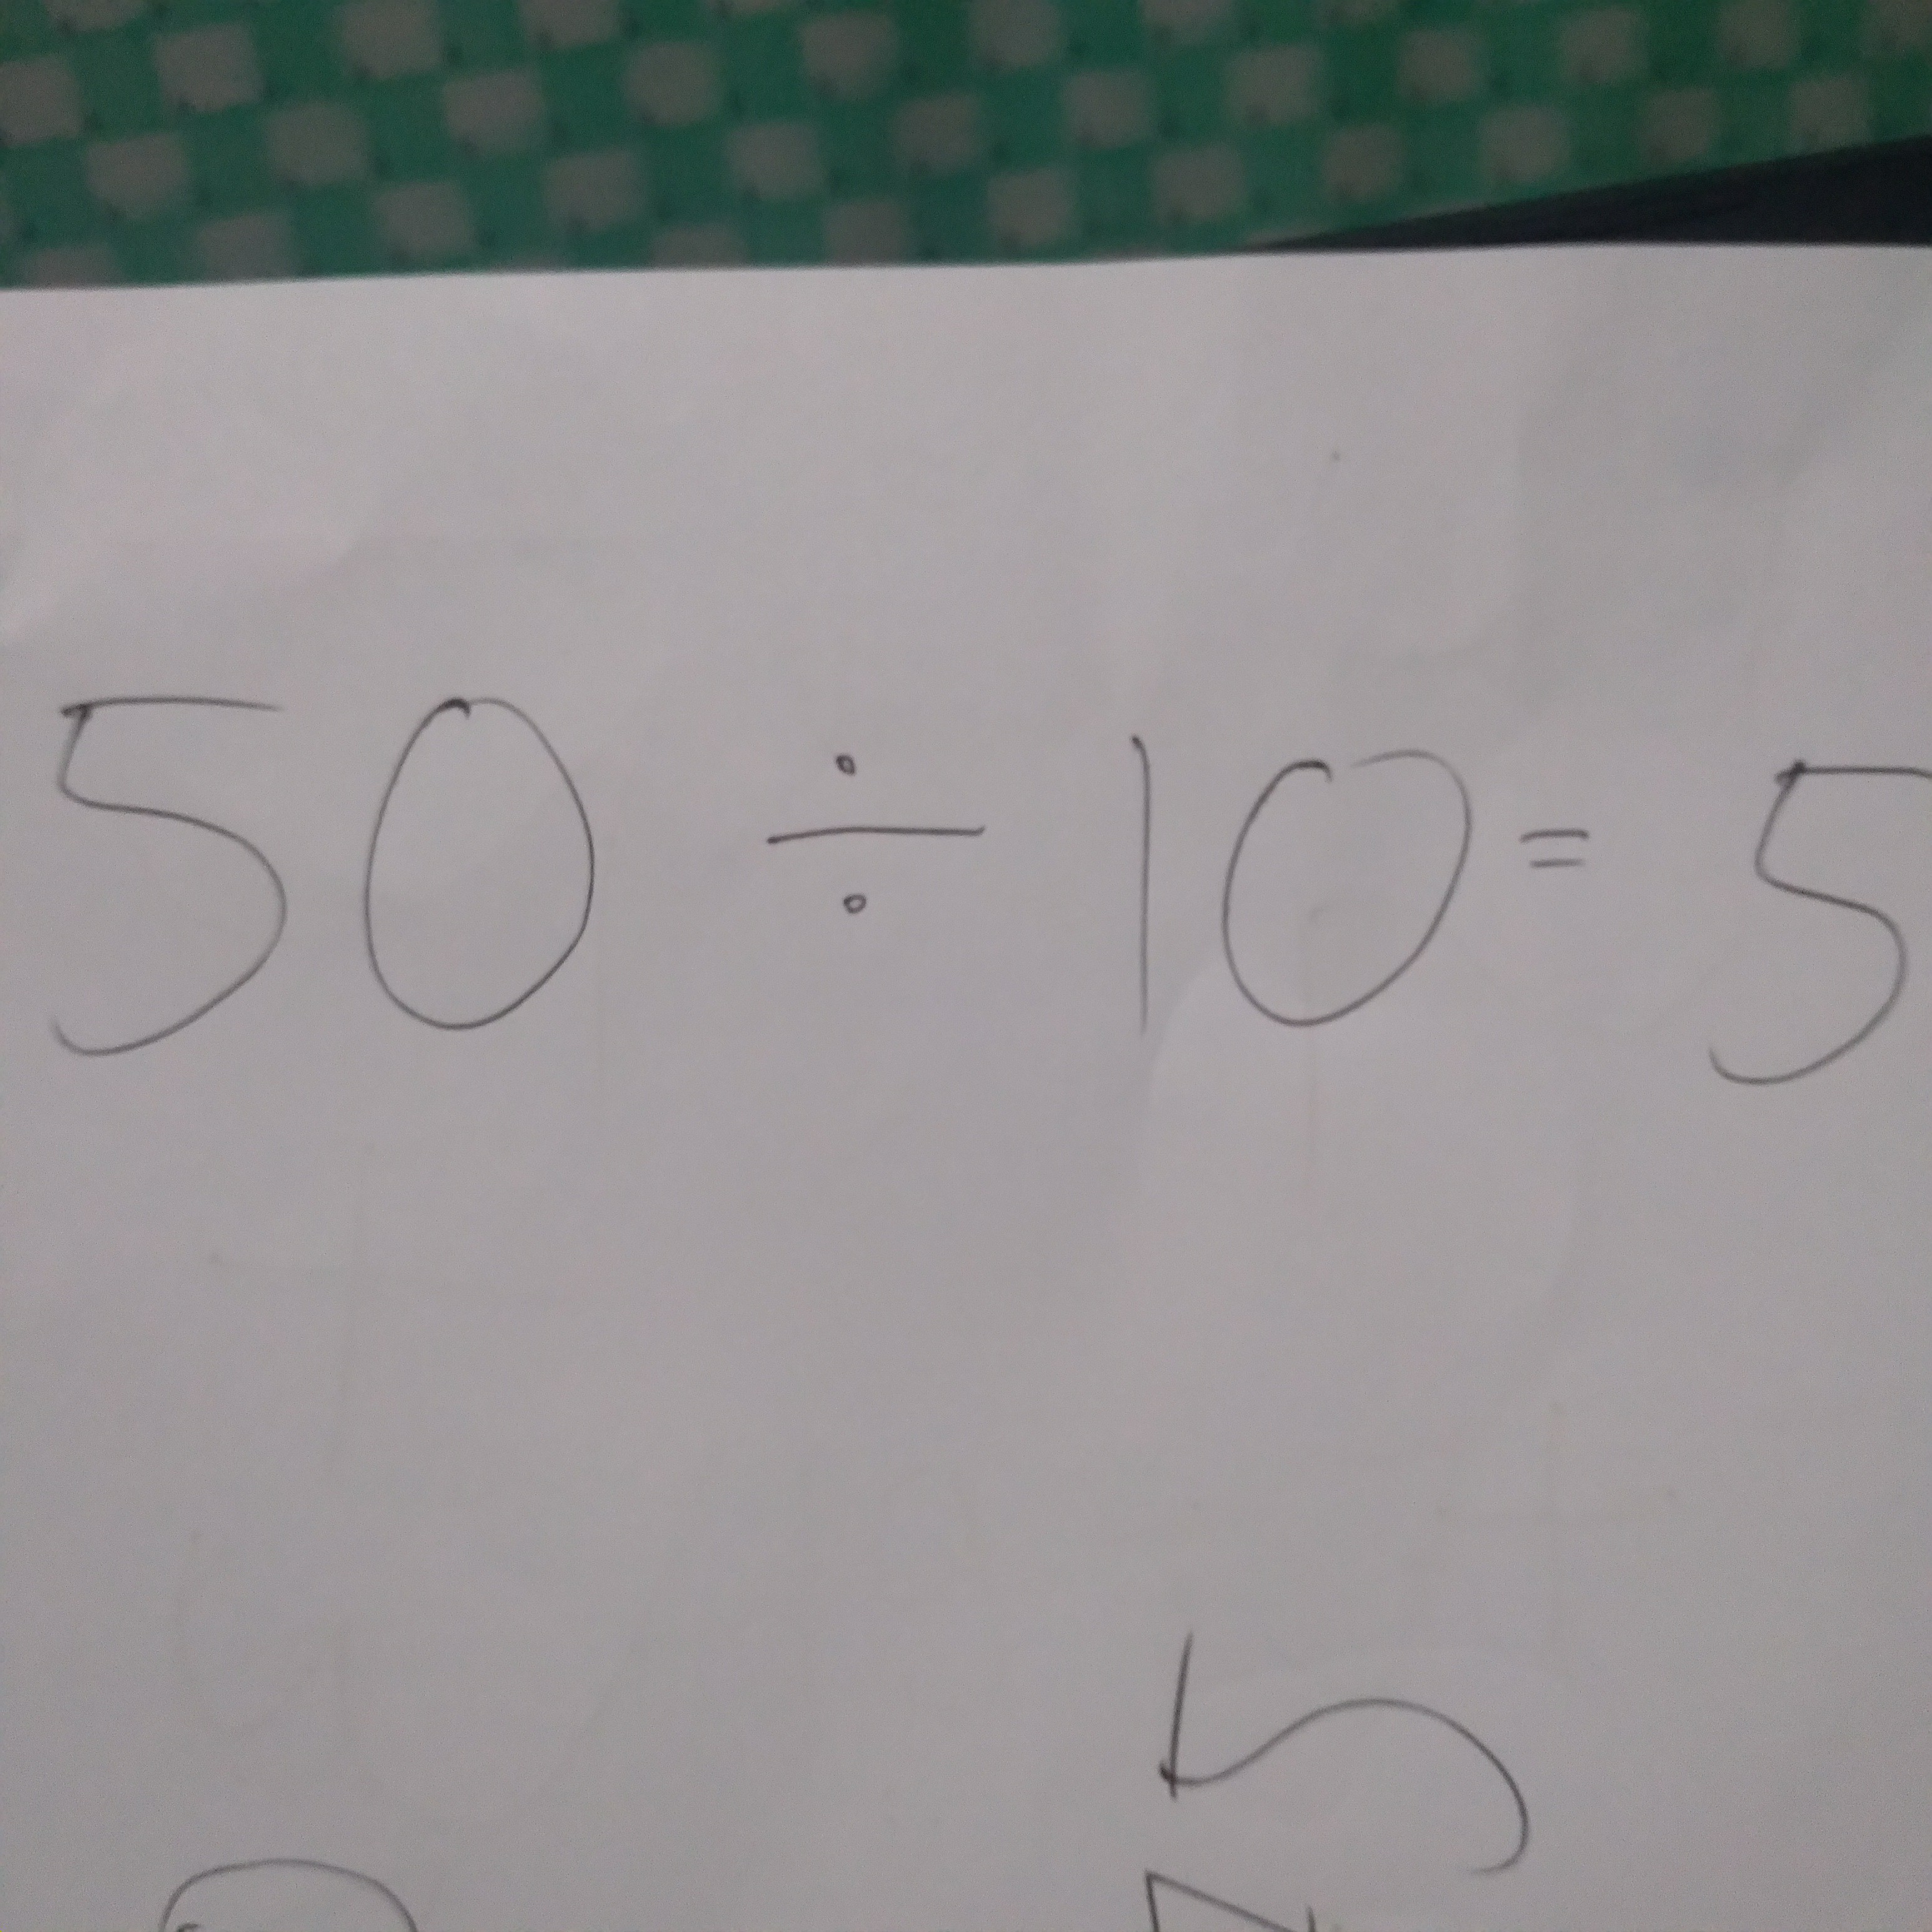 50 ÷ 10 = 5